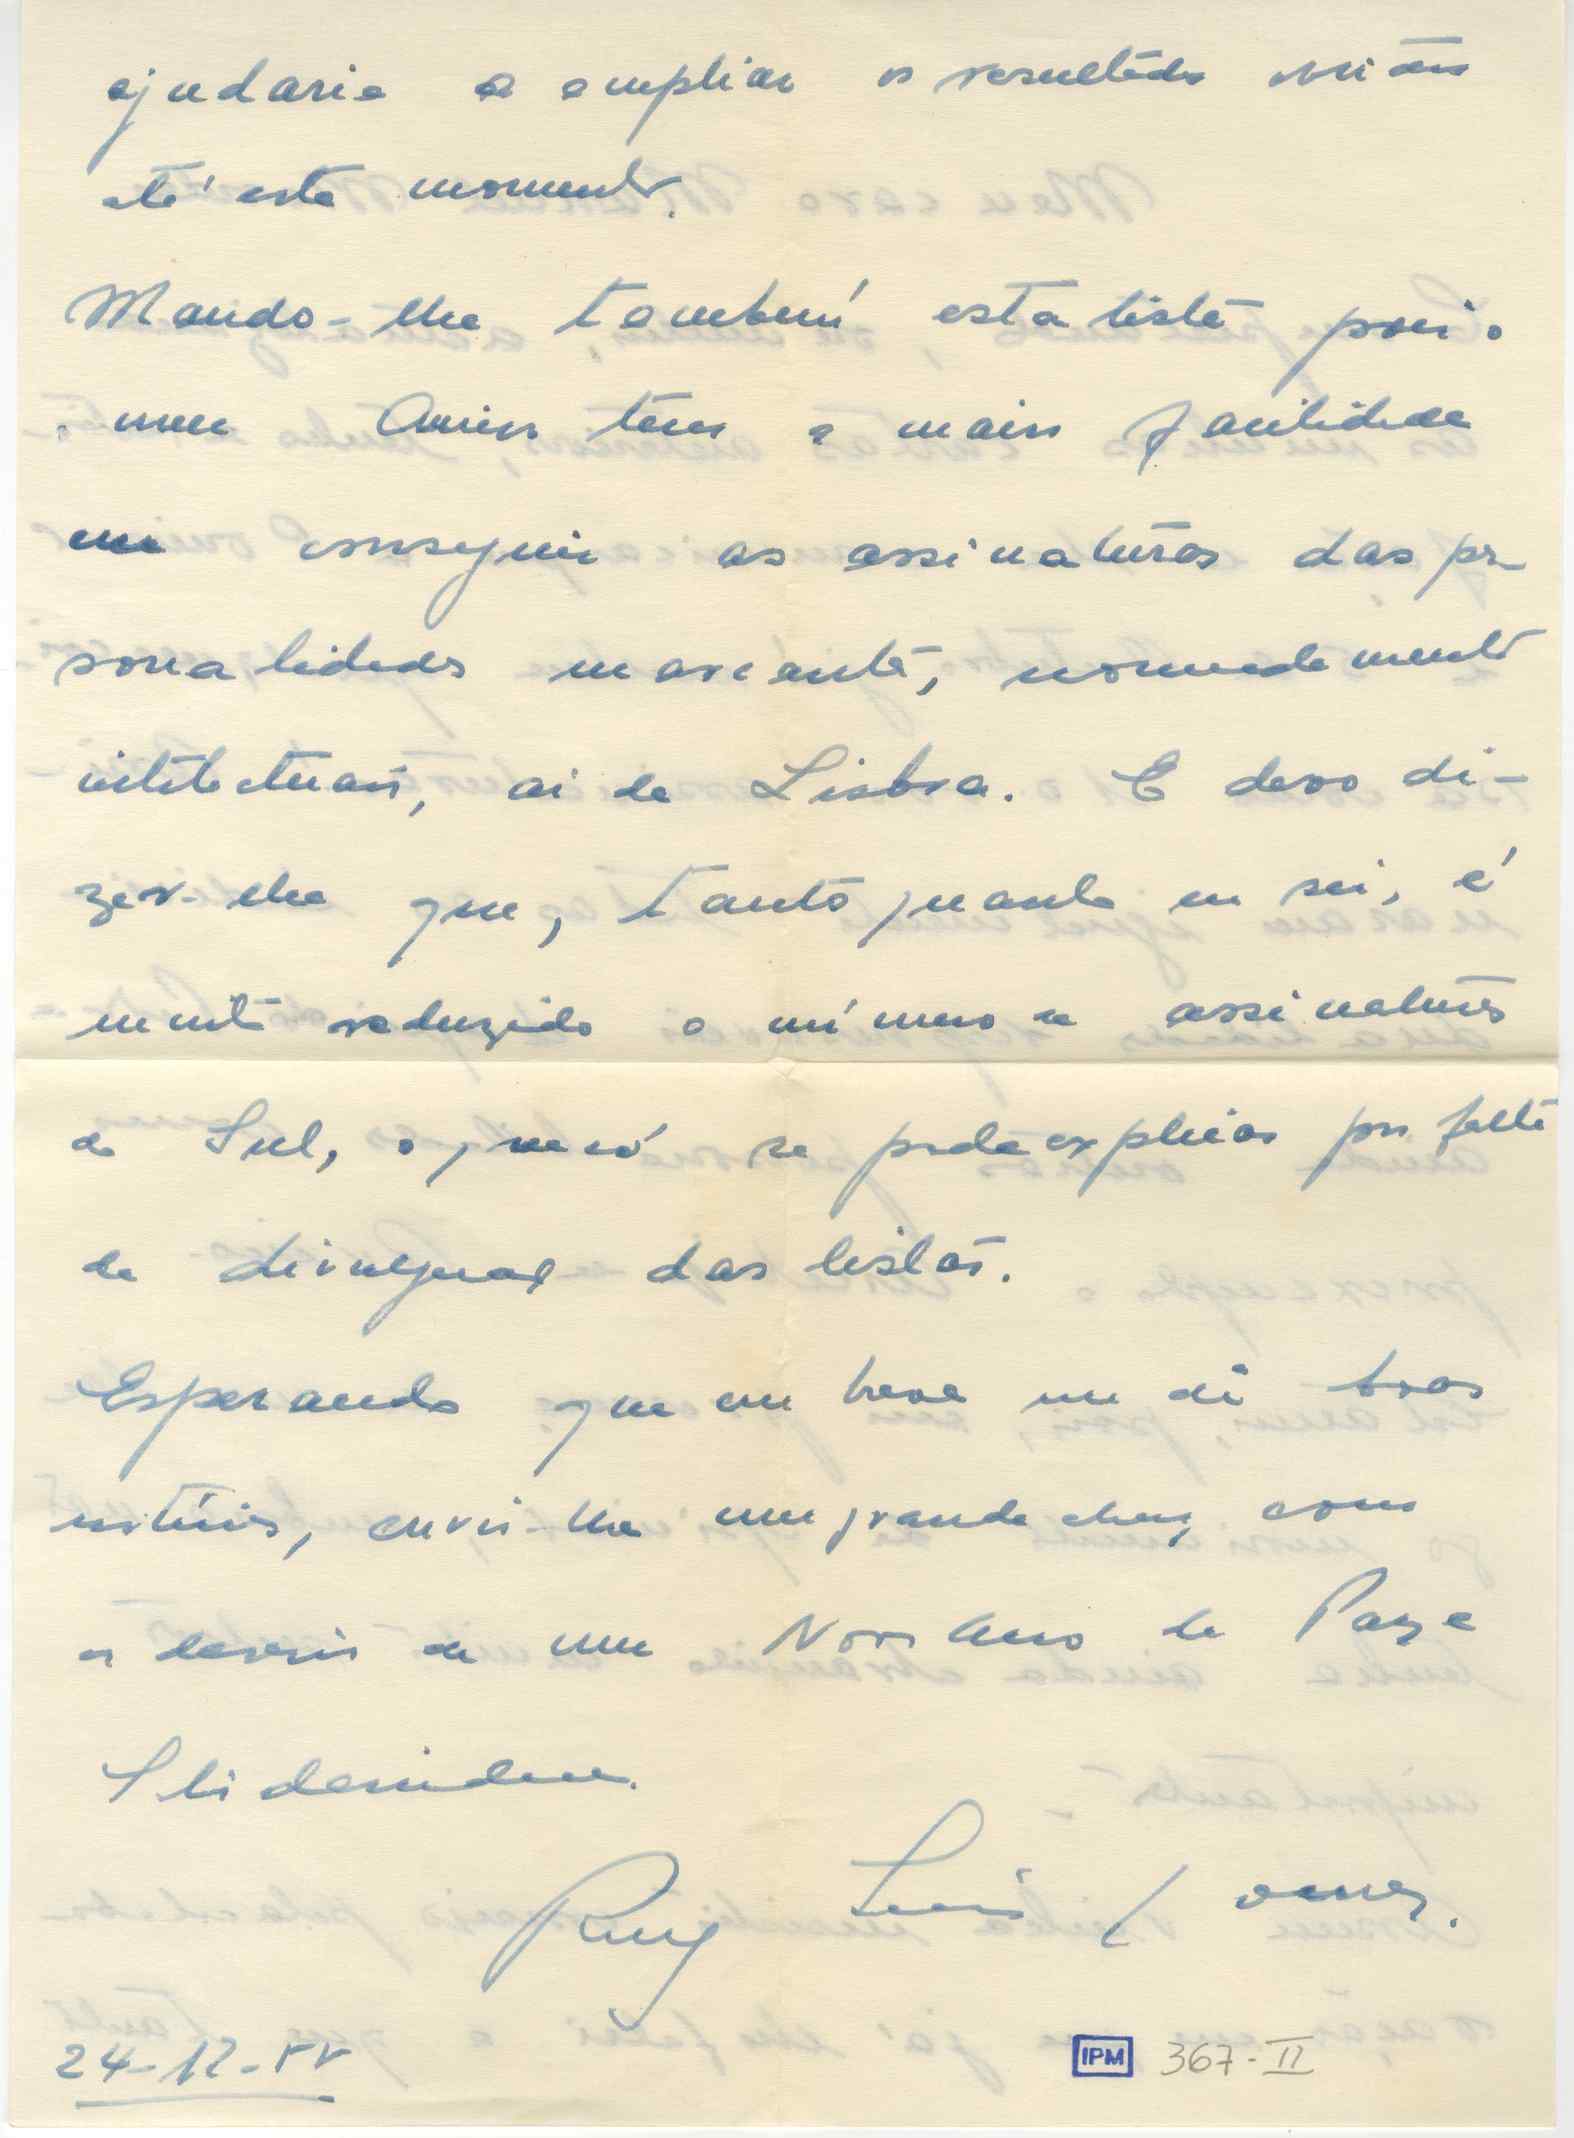 ajudaria a ampliar os resultados
até este momento.
Mando-lhe também esta lista pois o
meu Amigo tem a maior facilidade
em conseguir as assinaturas das per-
sonalidades marcantes, nomeadamente
intelectuais, aí de Lisboa. E devo di-
zer-lhe que, tanto quanto eu sei, é
muito reduzido o número de assinaturas
do Sul, o que só se pode explicar por falta
de divulgação das listas.
Esperando que em breve me dê boas
notícias, envio-lhe um grande abraço com
os desejos de um Novo Ano de Paz e
Ruy Luís Gomes.
24-12-
IPM 367-II